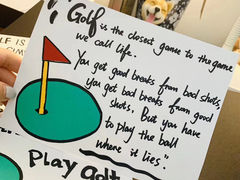 "Golf is the closest game to the game
we call life.
You get good breaks from bad shots,
You get bad breaks from good
shots. But you have
to play the ball
where it lies".
Play